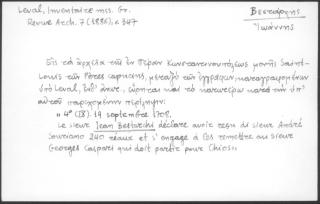 Leval, Inventaire mss. Gr.
Revue Arch. 7 (1886), σ. 347
Βεστάρχης
Ἰωάννης
Εἰς τὰ ἀρχεῖα τῆς ἐν Πέραν Κωνσταντινουπόλεως μονῆς Saint-
Louis τῶν Pères capucins, μεταξὺ τῶν ἐγγράφων,
ὑπὸ Leval, ἔνθ' ἀνωτ., καὶ τὸ κατωτέρω κατὰ τὴν ὑπ'
αὐτοῦ παρεχομένην περίληψιν:
" 4° (IX). 19 septembre 1708.
Le sieur Jean Bestarchi déclare avoir reçu du sieur André
Souriano 240 réaux et s'engage à les remettre au sieur
Georges Caspari qui doit partir pour Chios"